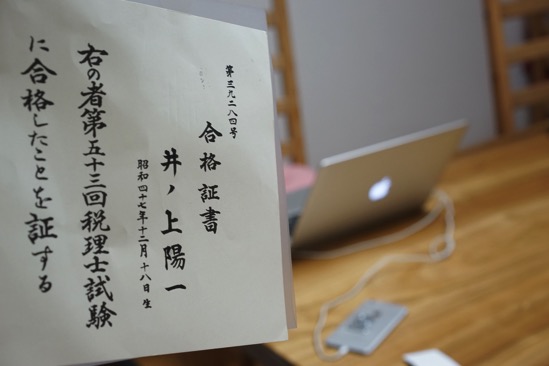 第三九二八四号
合格証書
井ノ上陽一
昭和四十七年十二月十八日生
右の者第五十三回税理士試験
に合格したことを証する